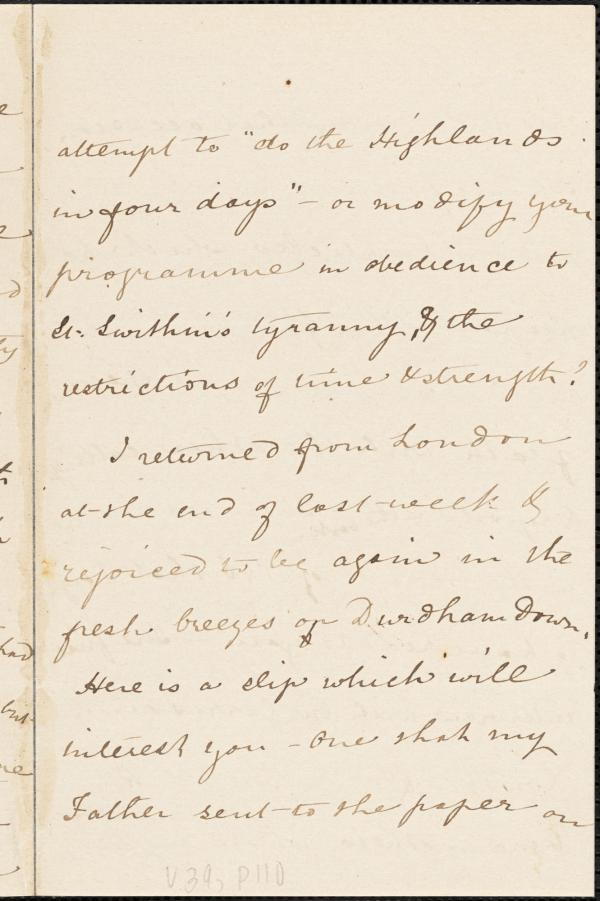 attempt to "do the Highlands
in four days" - or modify your
programme in obedience to
St. Swithin's tyranny, & the
restrictions of time & strength?
I returned from London
at the end of last week &
rejoiced to be again in the
fresh breezes of Durdham Down.
Here is a slip which will
interest you - one that my
Father sent to the paper on
V.39, P110